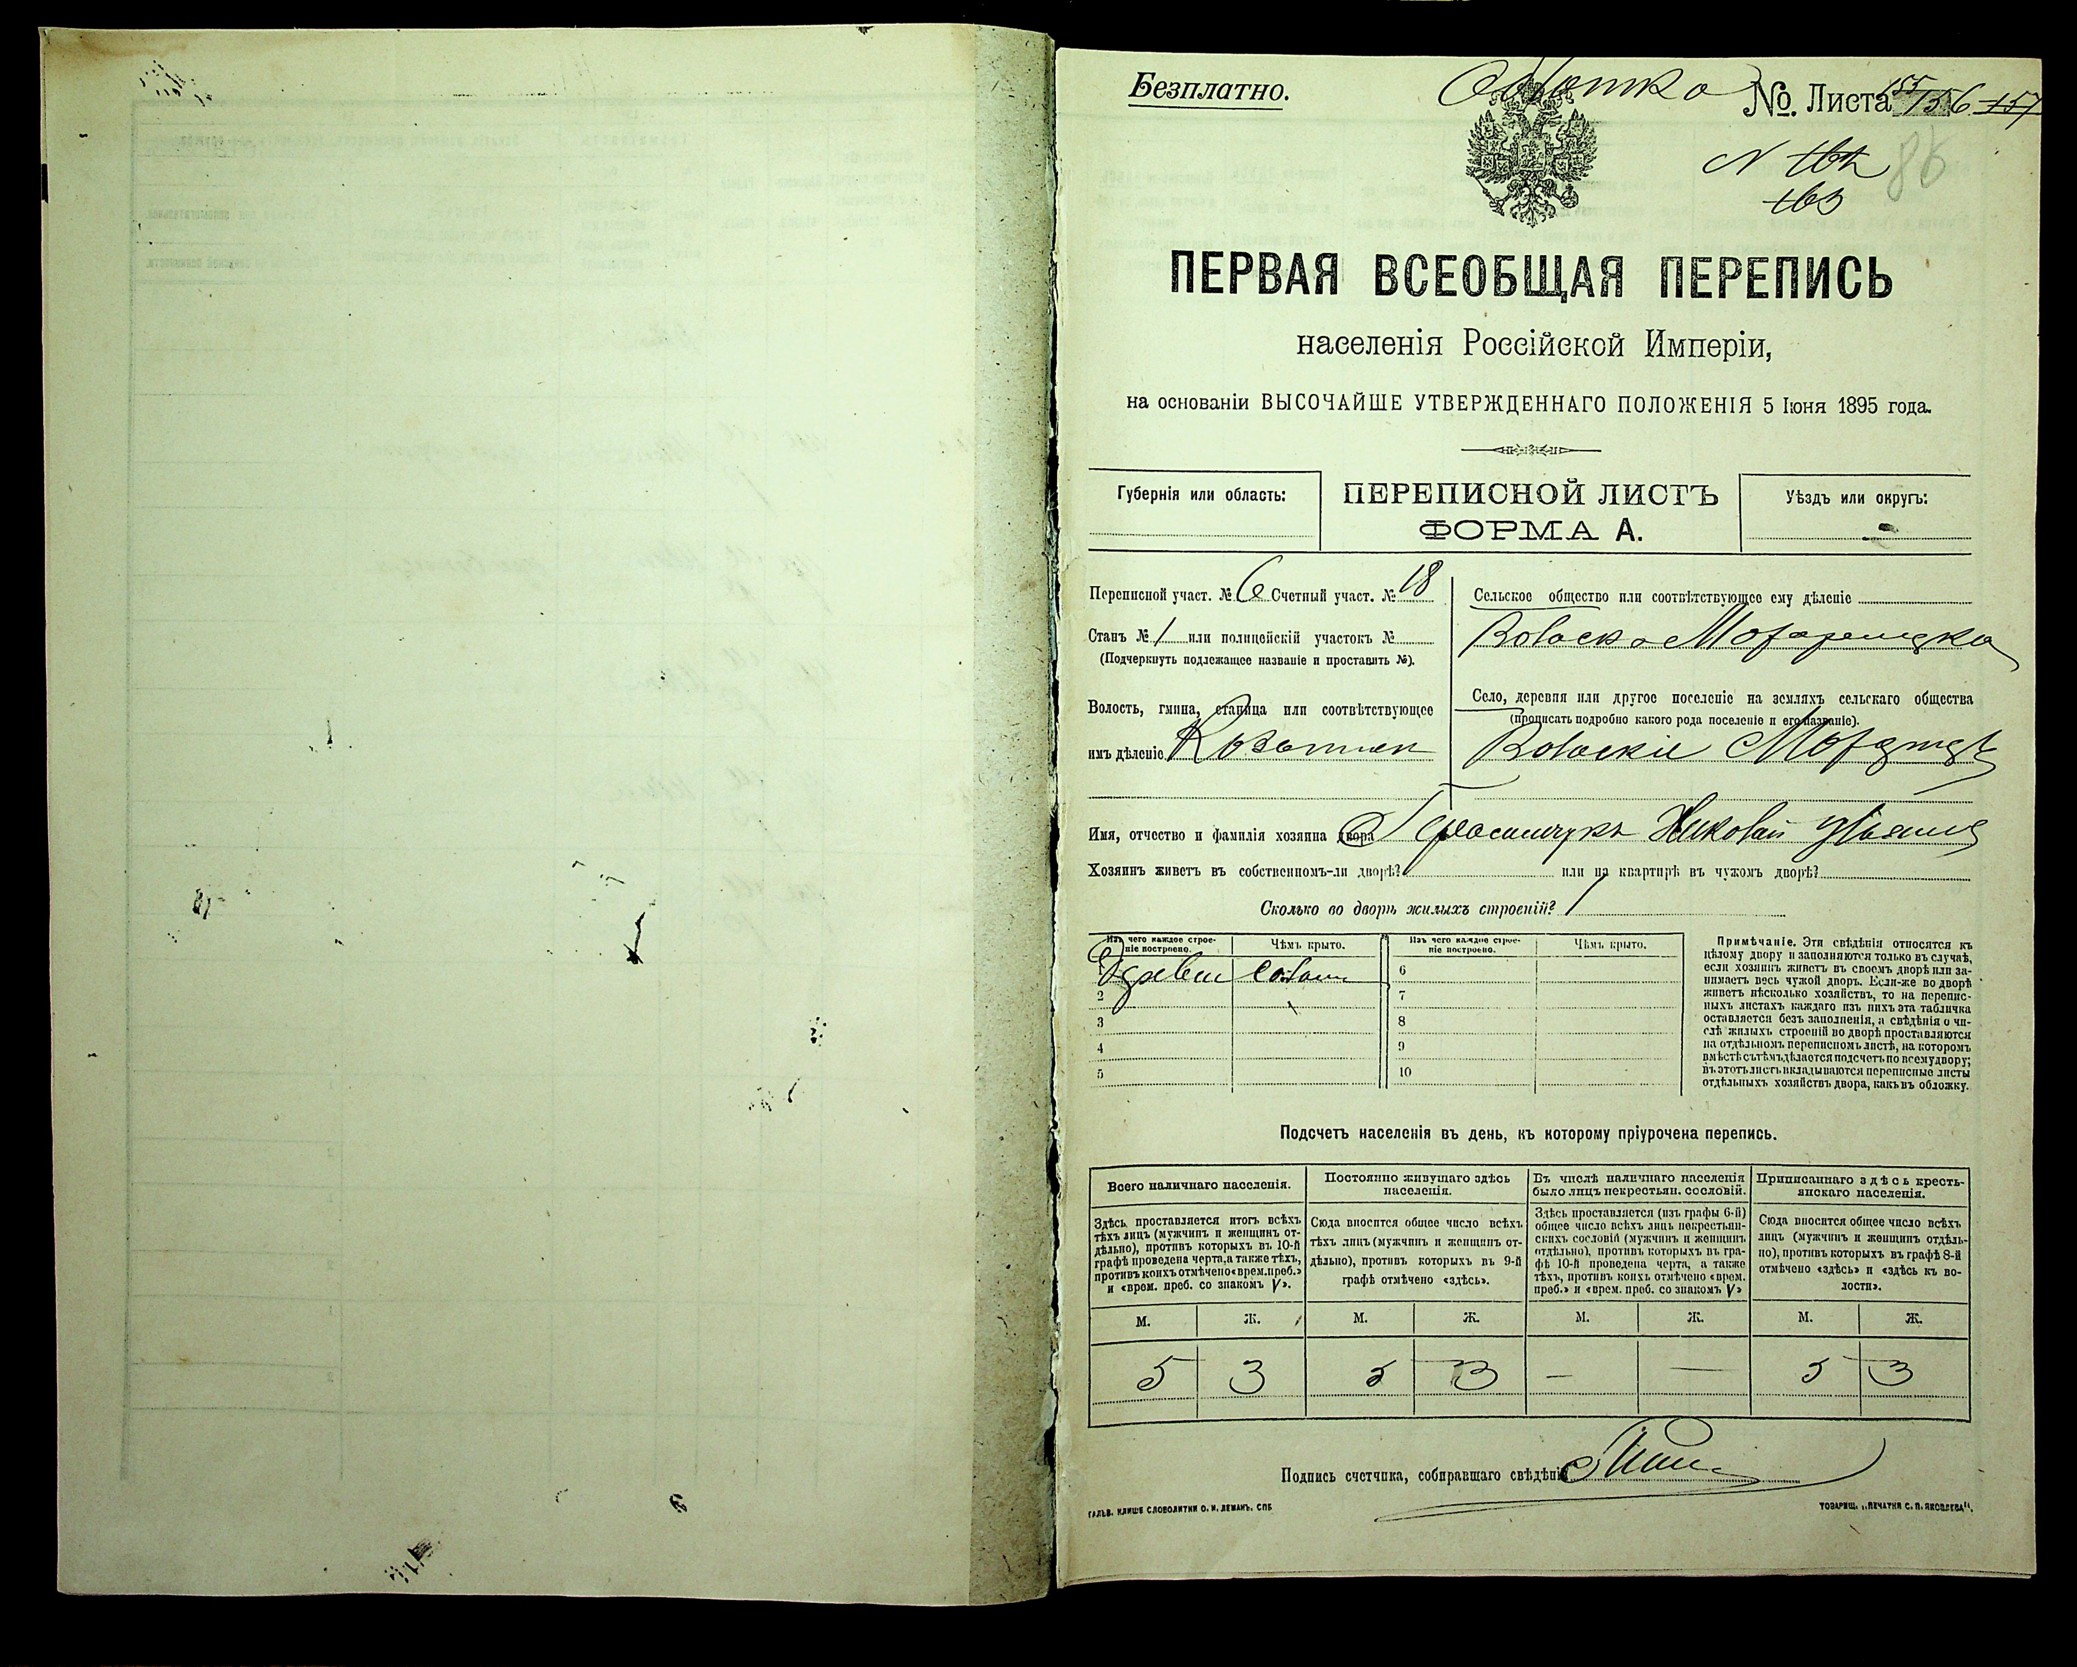 Безплатно.
Обложка
№. Листа 155 156 157
N 162
163
86
ПЕРВАЯ ВСЕОБЩАЯ ПЕРЕПИСЬ
населенія Россійской Имперіи,
на основаніи ВЫСОЧАЙШЕ УТВЕРЖДЕННАГО ПОЛОЖЕНІЯ 5 Іюня 1895 года.
Губернія или область:
ПЕРЕПИСНОЙ ЛИСТЪ
ФОРМА А.
Уѣздъ или округъ:
Переписной участ. № 6 Счетный участ. № 18
Станъ № 1 или полицейскій участокъ №
(Подчеркнуть подлежащее названіе и проставить №).
Волость, гмина, станица или соотвѣтствующее
имъ дѣленіе
Сельское общество или соотвѣтствующее ему дѣленіе
Село, деревня или другое поселеніе на земляхъ сельскаго общества
(прописать подробно какого рода поселеніе и его названіе).
Имя, отчество и фамилія хозяина двора Герасимчукъ Николай
Хозяинъ живетъ въ собственномъ-ли дворѣ? или на квартирѣ въ чужомъ дворѣ?
Сколько во дворѣ жилыхъ строеній? 1
Изъ чего каждое строе-
ніе построено.
Чѣмъ крыто.
Изъ чего каждое строе-
ніе построено.
Чѣмъ крыто.
6
2
7
3
8
4
9
5
10
Примѣчаніе. Эти свѣдѣнія относятся къ
цѣлому двору и заполняются только въ случаѣ,
если хозяинъ живетъ въ своемъ дворѣ или за-
нимаетъ весь чужой дворъ. Если-же во дворѣ
живетъ нѣсколько хозяйствъ, то на перепис-
ныхъ листахъ каждаго изъ нихъ эта табличка
оставляется безъ заполненія, а свѣдѣнія о чи-
слѣ жилыхъ строеній во дворѣ проставляются
на отдѣльномъ переписномъ листѣ, на которомъ
вмѣстѣ съ тѣмъ дѣлается подсчетъ по всему двору;
въ этотъ листъ вкладываются переписные листы
отдѣльныхъ хозяйствъ двора, какъ въ обложку.
Подсчетъ населенія въ день, къ которому пріурочена перепись.
Всего наличнаго населенія.
Постоянно живущаго здѣсь
населенія.
Въ числѣ наличнаго населенія
было лицъ некрестьян. сословій.
Приписаннаго здѣсь кресть-
янскаго населенія.
Здѣсь проставляется итогъ всѣхъ
тѣхъ лицъ (мужчинъ и женщинъ от-
дѣльно), противъ которыхъ въ 10-й
графѣ проведена черта, а также тѣхъ,
противъ коихъ отмѣчено «врем. преб.»
и «врем. преб. со знакомъ V».
Сюда вносится общее число всѣхъ
тѣхъ лицъ (мужчинъ и женщинъ от-
дѣльно), противъ которыхъ въ 9-й
графѣ отмѣчено «здѣсь».
Здѣсь проставляется (изъ графы 6-й)
общее число всѣхъ лицъ некрестьян-
скихъ сословій (мужчинъ и женщинъ
отдѣльно), противъ которыхъ въ гра-
фѣ 10-й проведена черта, а также
тѣхъ, противъ коихъ отмѣчено «врем.
преб.» и «врем. преб. со знакомъ V»
Сюда вносится общее число всѣхъ
лицъ (мужчинъ и женщинъ отдѣль-
но), противъ которыхъ въ графѣ 8-й
отмѣчено «здѣсь» и «здѣсь къ во-
лости».
М. Ж. М. Ж. М. Ж. М. Ж.
5 3 5 3 — — 5 3
Подпись счетчика, собиравшаго свѣдѣнія
ГАЛЬВ. КЛИШЕ СЛОВОЛИТНИ О. И. ЛЕМАНЪ. СПБ
ТОВАРИЩ. „ПЕЧАТНИ С. П. ЯКОВЛЕВА“.